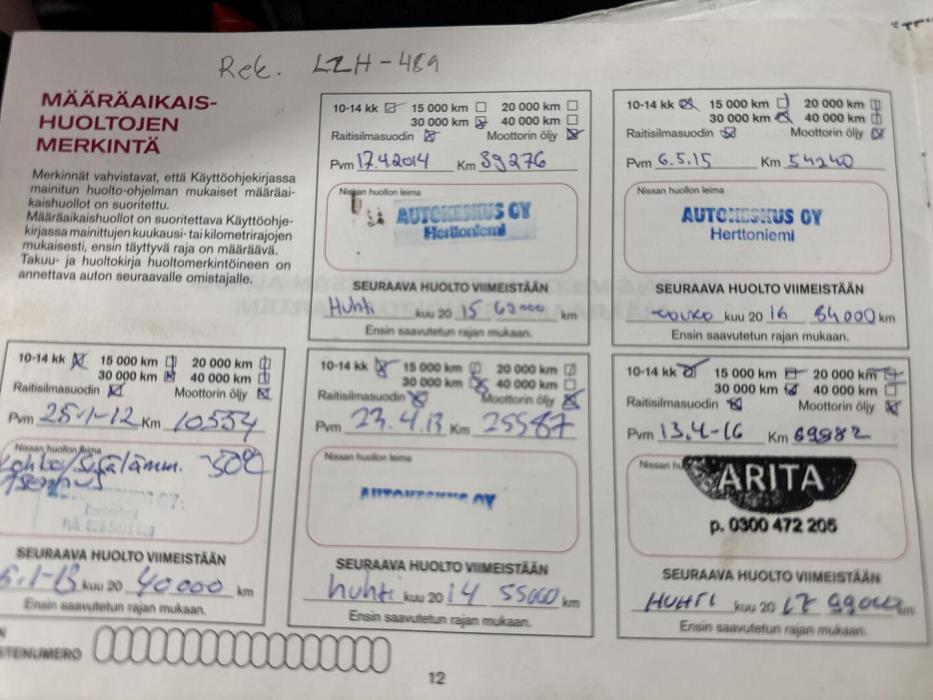 Rek. LZH-489
MÄÄRÄAIKAIS-
HUOLTOJEN
MERKINTÄ
Merkinnät vahvistavat, että Käyttöohjekirjassa
mainitun huolto-ohjelman mukaiset määräai-
kaishuollot on suoritettu.
Määräaikaishuollot on suoritettava Käyttöohje-
kirjassa mainittujen kuukausi- tai kilometrirajojen
mukaisesti, ensin täyttyvä raja on määräävä.
Takuu- ja huoltokirja huoltomerkintöineen on
annettava auton seuraavalle omistajalle.
10-14 kk 15 000 km 20 000 km
30 000 km 40 000 km
Raitisilmasuodin Moottorin öljy
Pvm 17.4.2014 Km 39276
Nissan huollon leima
AUTOKESKUS OY
Herttoniemi
SEURAAVA HUOLTO VIIMEISTÄÄN
Huhti kuu 20 15 69000 km
Ensin saavutetun rajan mukaan.
10-14 kk 15 000 km 20 000 km
30 000 km 40 000 km
Raitisilmasuodin Moottorin öljy
Pvm 6.5.15 Km 54240
Nissan huollon leima
AUTOKESKUS OY
Herttoniemi
SEURAAVA HUOLTO VIIMEISTÄÄN
kuu 20 16 84000 km
Ensin saavutetun rajan mukaan.
10-14 kk 15 000 km 20 000 km
30 000 km 40 000 km
Raitisilmasuodin Moottorin öljy
Pvm 25-1-12 Km 10554
Nissan huollon leima
SEURAAVA HUOLTO VIIMEISTÄÄN
kuu 20 40000 km
Ensin saavutetun rajan mukaan.
10-14 kk 15 000 km 20 000 km
30 000 km 40 000 km
Raitisilmasuodin Moottorin öljy
Pvm 23.4.13 Km 25587
Nissan huollon leima
AUTOKESKUS OY
SEURAAVA HUOLTO VIIMEISTÄÄN
huhti kuu 20 14 55000 km
Ensin saavutetun rajan mukaan.
10-14 kk 15 000 km 20 000 km
30 000 km 40 000 km
Raitisilmasuodin Moottorin öljy
Pvm 13.4-16 Km 69982
Nissan
ARITA
p. 0300 472 205
SEURAAVA HUOLTO VIIMEISTÄÄN
HUHTI kuu 20 17 99000 km
Ensin saavutetun rajan mukaan.
12